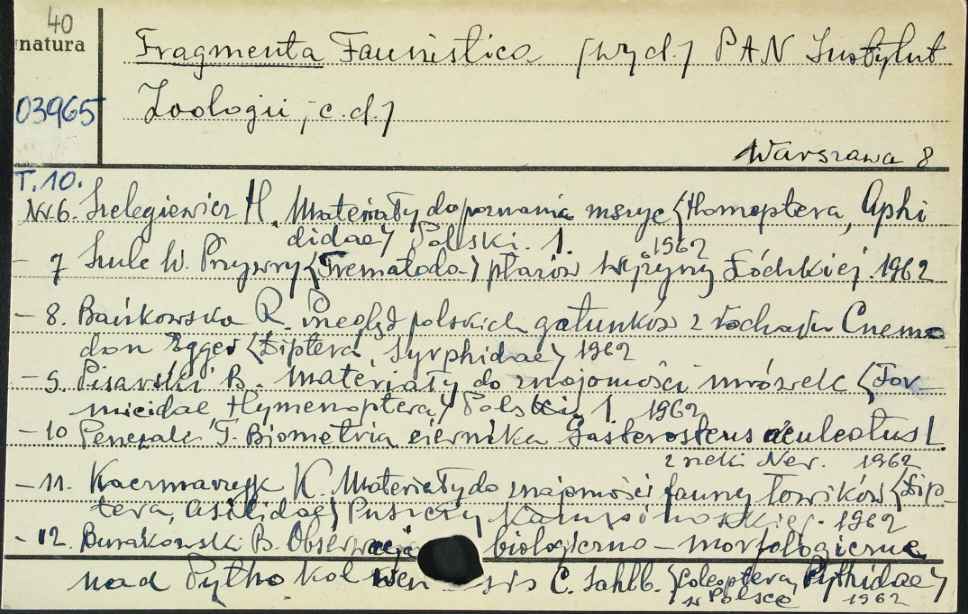 40
natura
03965
Fragmenta Faunistica [wyd.] PAN Instytut
Zoologii, c.d.]
Warszawa 8
T. 10.
Nr 6. Szelegiewicz H. Materiały do poznania mszyc (Homoptera, Aphi
didae) Polski. 1. 1962
- 7 Szulc W. Przywry (Trematoda) płazów Wyżyny Łódzkiej. 1962
- 8. Bańkowska R. Przegląd polskich gatunków z rodzaju Cnemo
don Egger (Diptera, Syrphidae) 1962
- 9. Pisarski B. Materiały do znajomości mrówek (For
micidae Hymenoptera) Polski 1 1962
- 10 Penczak T. Biometria ciernika Gasterosteus aculeatus L
z rzeki Ner. 1962
- 11. Kaczmarzyk K. Materiały do znajomości fauny łowików (Dip-
tera, Asilidae) Puszczy Kampinoskiej. 1962
- 12. Burakowski B. Obserwacje biologiczno - morfologiczne
nad Pytho kol wen sis C. Sahlb. (Coleoptera, Pythidae)
w Polsce 1962